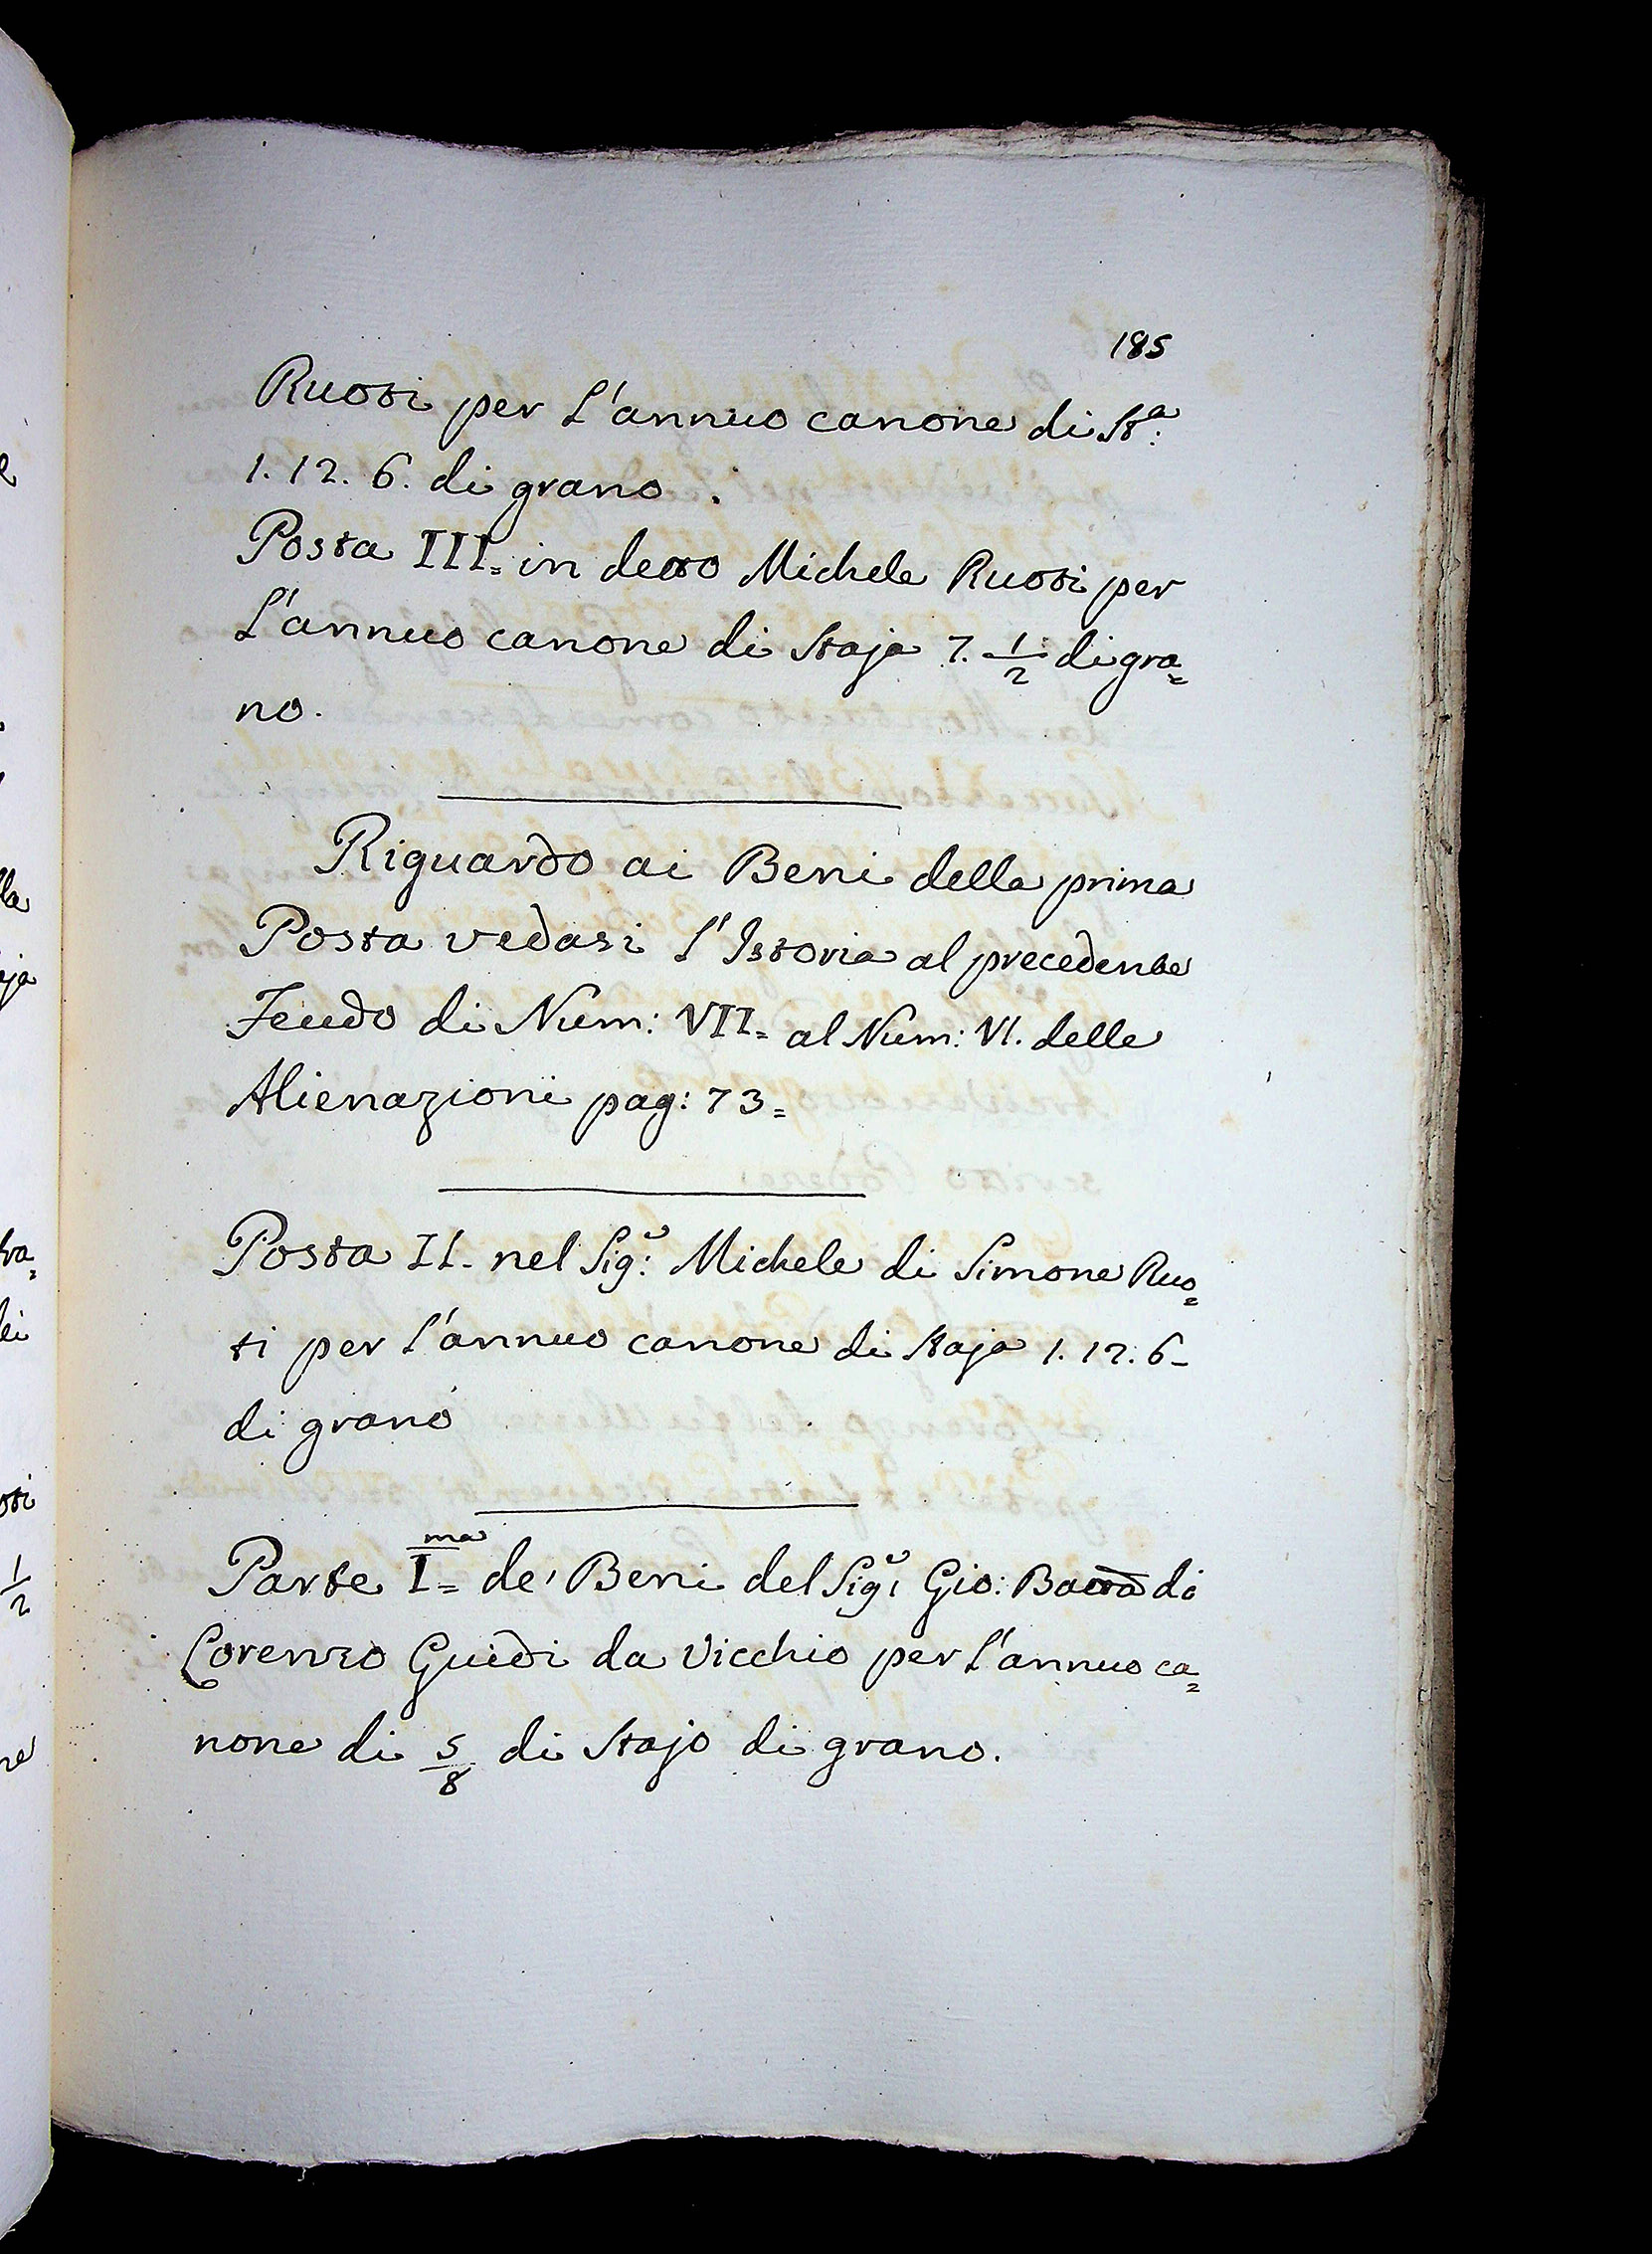 185
Ruoti per l'annuo canone di St.ª
1. 12. 6. di grano.
Posta III= in detto Michele Ruoti per
L'annuo canone di Staja 7. 1/2 di gra=
no.
Riguardo ai Beni della prima
Posta vedasi l'Istoria al precedente
Feudo di Num: VII= al Num: VI. delle
Alienazioni pag: 73=
Posta II. nel Sig.r: Michele di Simone Ruo=
ti per l'annuo canone di Staja 1. 12. 6-
di grano
Parte I.ma= de' Beni del Sig.r Gio: Batta di
Lorenzo Guidi da Vicchio per l'annuo ca=
none di 5/8 di Stajo di grano.